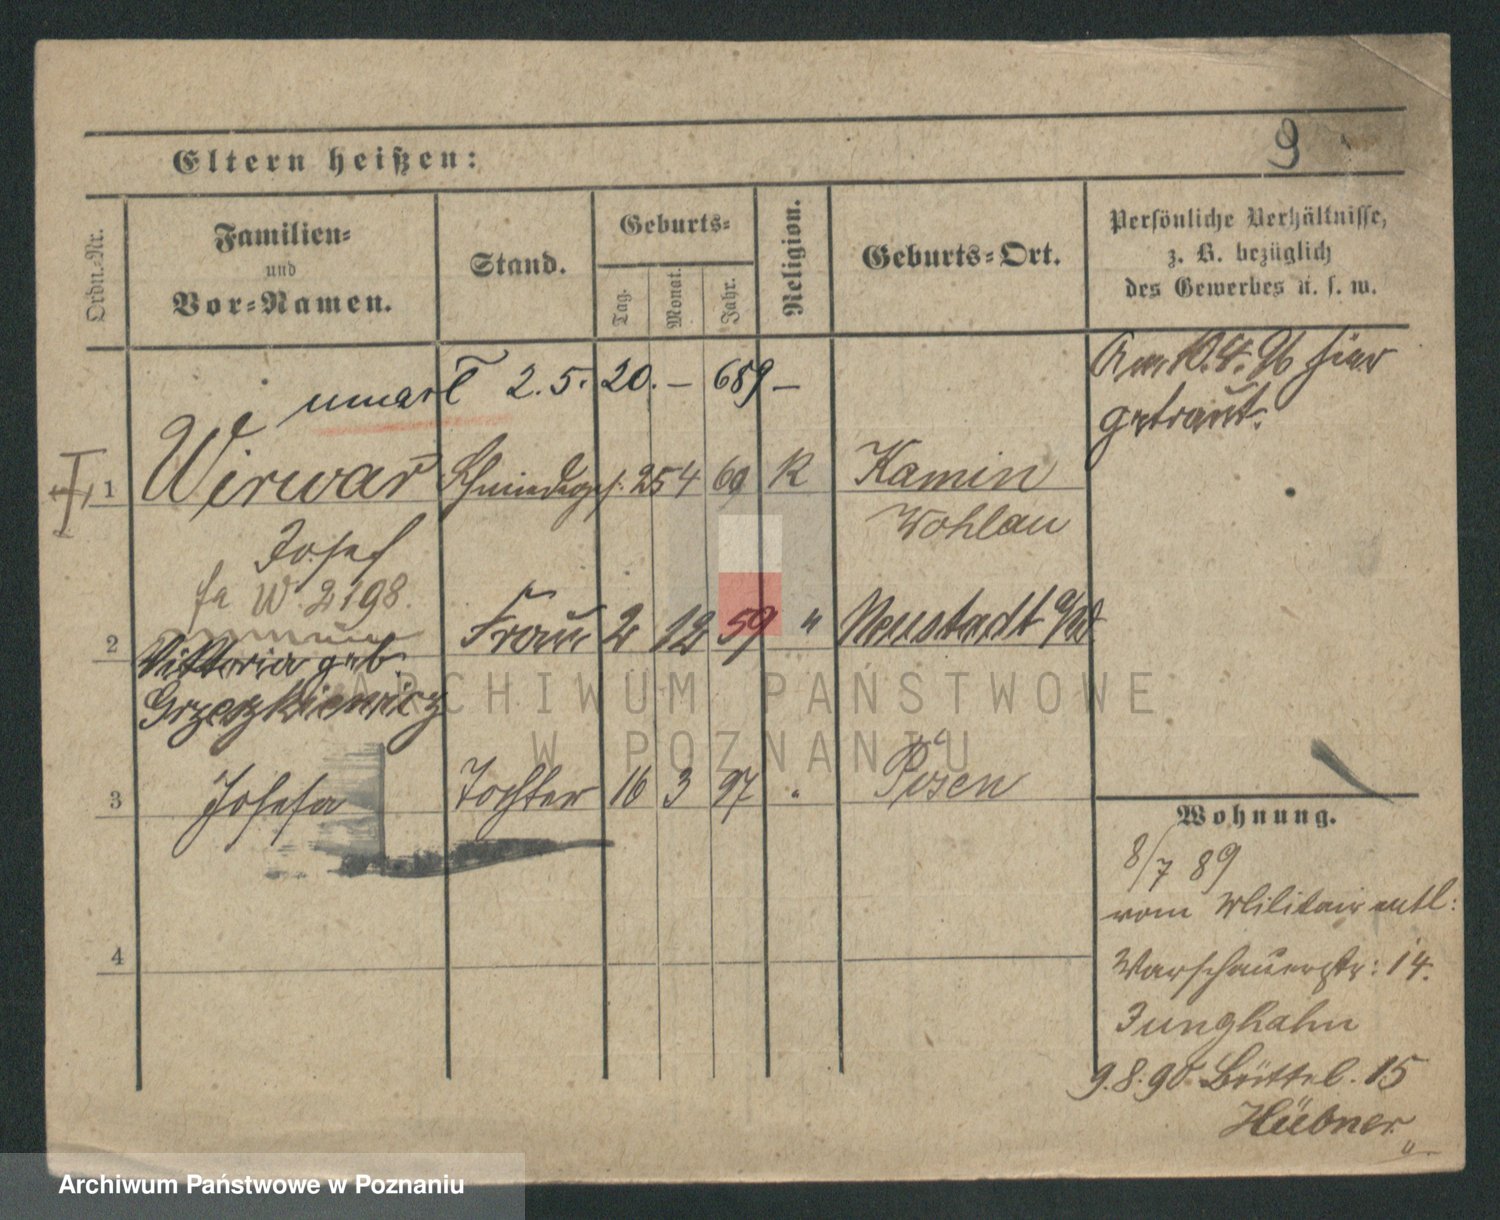 9
Eltern heißen:
Ordn.-Nr.
Familien-
und
Vor-Namen.
Stand.
Geburts-
Tag.
Monat.
Jahr.
Religion.
Geburts-Ort.
Persönliche Verhältnisse,
z. B. bezüglich
des Gewerbes u. s. w.
2. 5. 20. — 689 —
Am 10.4.96 hier
getraut.
1 Wirwař Schmiedeges. 25 4 69 K Kamin
Wohlau
Josef
fa W. 2198.
2 Frau 2 12 59 " Neustadt a/W.
Viktoria geb.
Grzeszkiewicz
3 Josefa Tochter 16 3 97 " Posen
4
Wohnung.
8/7 89
vom Militair entl:
Warschauerstr: 14.
Junghahn
9.8.90 Büttel. 15
Hübner
ARCHIWUM PAŃSTWOWE
W POZNANIU
Archiwum Państwowe w Poznaniu